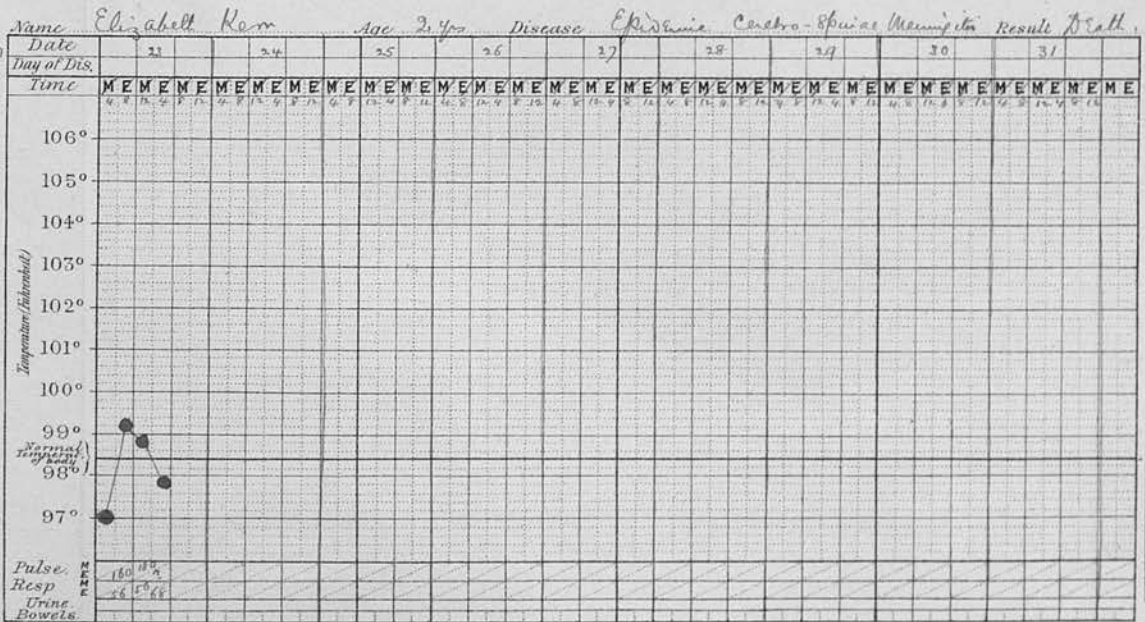 Name Elizabeth Kem Age 2 yrs Disease Epidemic Cerebro-Spinal Meningitis Result Death.
Date 23 24 25 26 27 28 29 30 31
Day of Dis.
Time M E M E M E M E M E M E M E M E M E M E M E M E M E M E M E M E M E M E M E M E M E M E M E M E M E M E M E M E
4 8 12 4 8 12 4 8 12 4 8 12 4 8 12 4 8 12 4 8 12 4 8 12 4 8 12 4 8 12 4 8 12 4 8 12 4 8 12 4 8 12 4 8 12 4 8 12 4 8 12 4 8 12
Temperature (Fahrenheit)
106°
105°
104°
103°
102°
101°
100°
99°
Normal Temperat. of body
98°
97°
Pulse. M E 160 180
Resp M E 56 56 68
Urine.
Bowels.